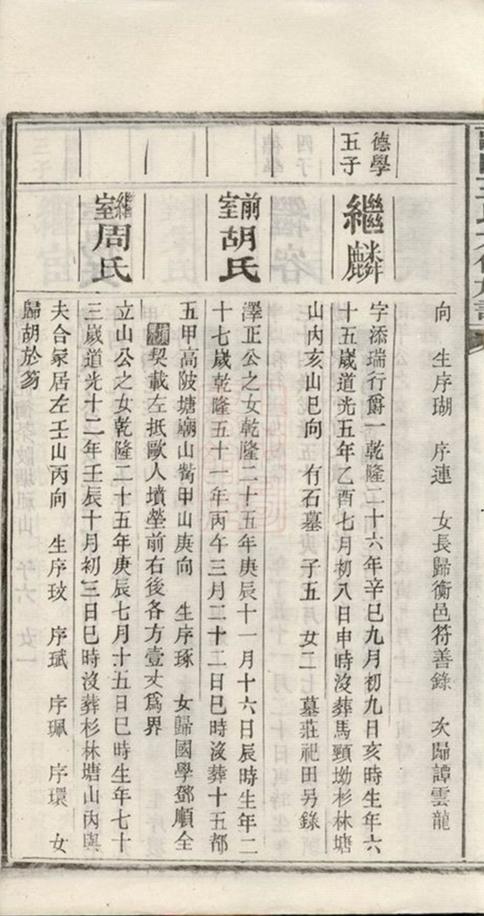 向　生序瑚　序連　女長歸衡邑符善錄　次歸譚雲龍
德學
五子
繼麟
字添瑞行爵一乾隆二十六年辛巳九月初九日亥時生年六
十五歲道光五年乙酉七月初八日申時沒葬馬頸坳杉林塘
山內亥山巳向　有石墓　子五　女二　墓莊祀田另錄
前室胡氏
澤正公之女乾隆二十五年庚辰十一月十六日辰時生年二
十七歲乾隆五十一年丙午三月二十二日巳時沒葬十五都
五甲高陂塘廟山嘴甲山庚向　生序琢　女歸國學鄧順全
契載左抵歐人墳塋前右後各方壹丈爲界
繼室周氏
立山公之女乾隆二十五年庚辰七月十五日巳時生年七十
三歲道光十二年壬辰十月初三日巳時沒葬杉林塘山內與
夫合冢居左壬山丙向　生序玟　序珷　序珮　序環　女
歸胡於芴